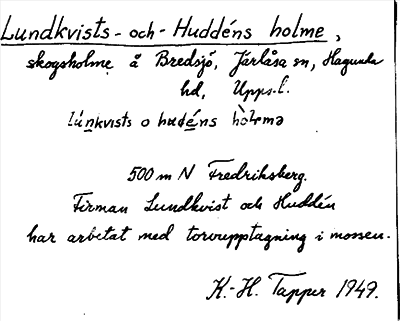 Lundkvists-och-Huddéns holme,
skogsholme å Bredsjö, Järlåsa sn, Hagunda
hd, Upps. l.
Lúnkvists o hudéns hòlmə
500 m N Fredriksberg.
Firman Lundkvist och Huddén
har arbetat med torvupptagning i mossen.
K.-H. Tapper 1949.